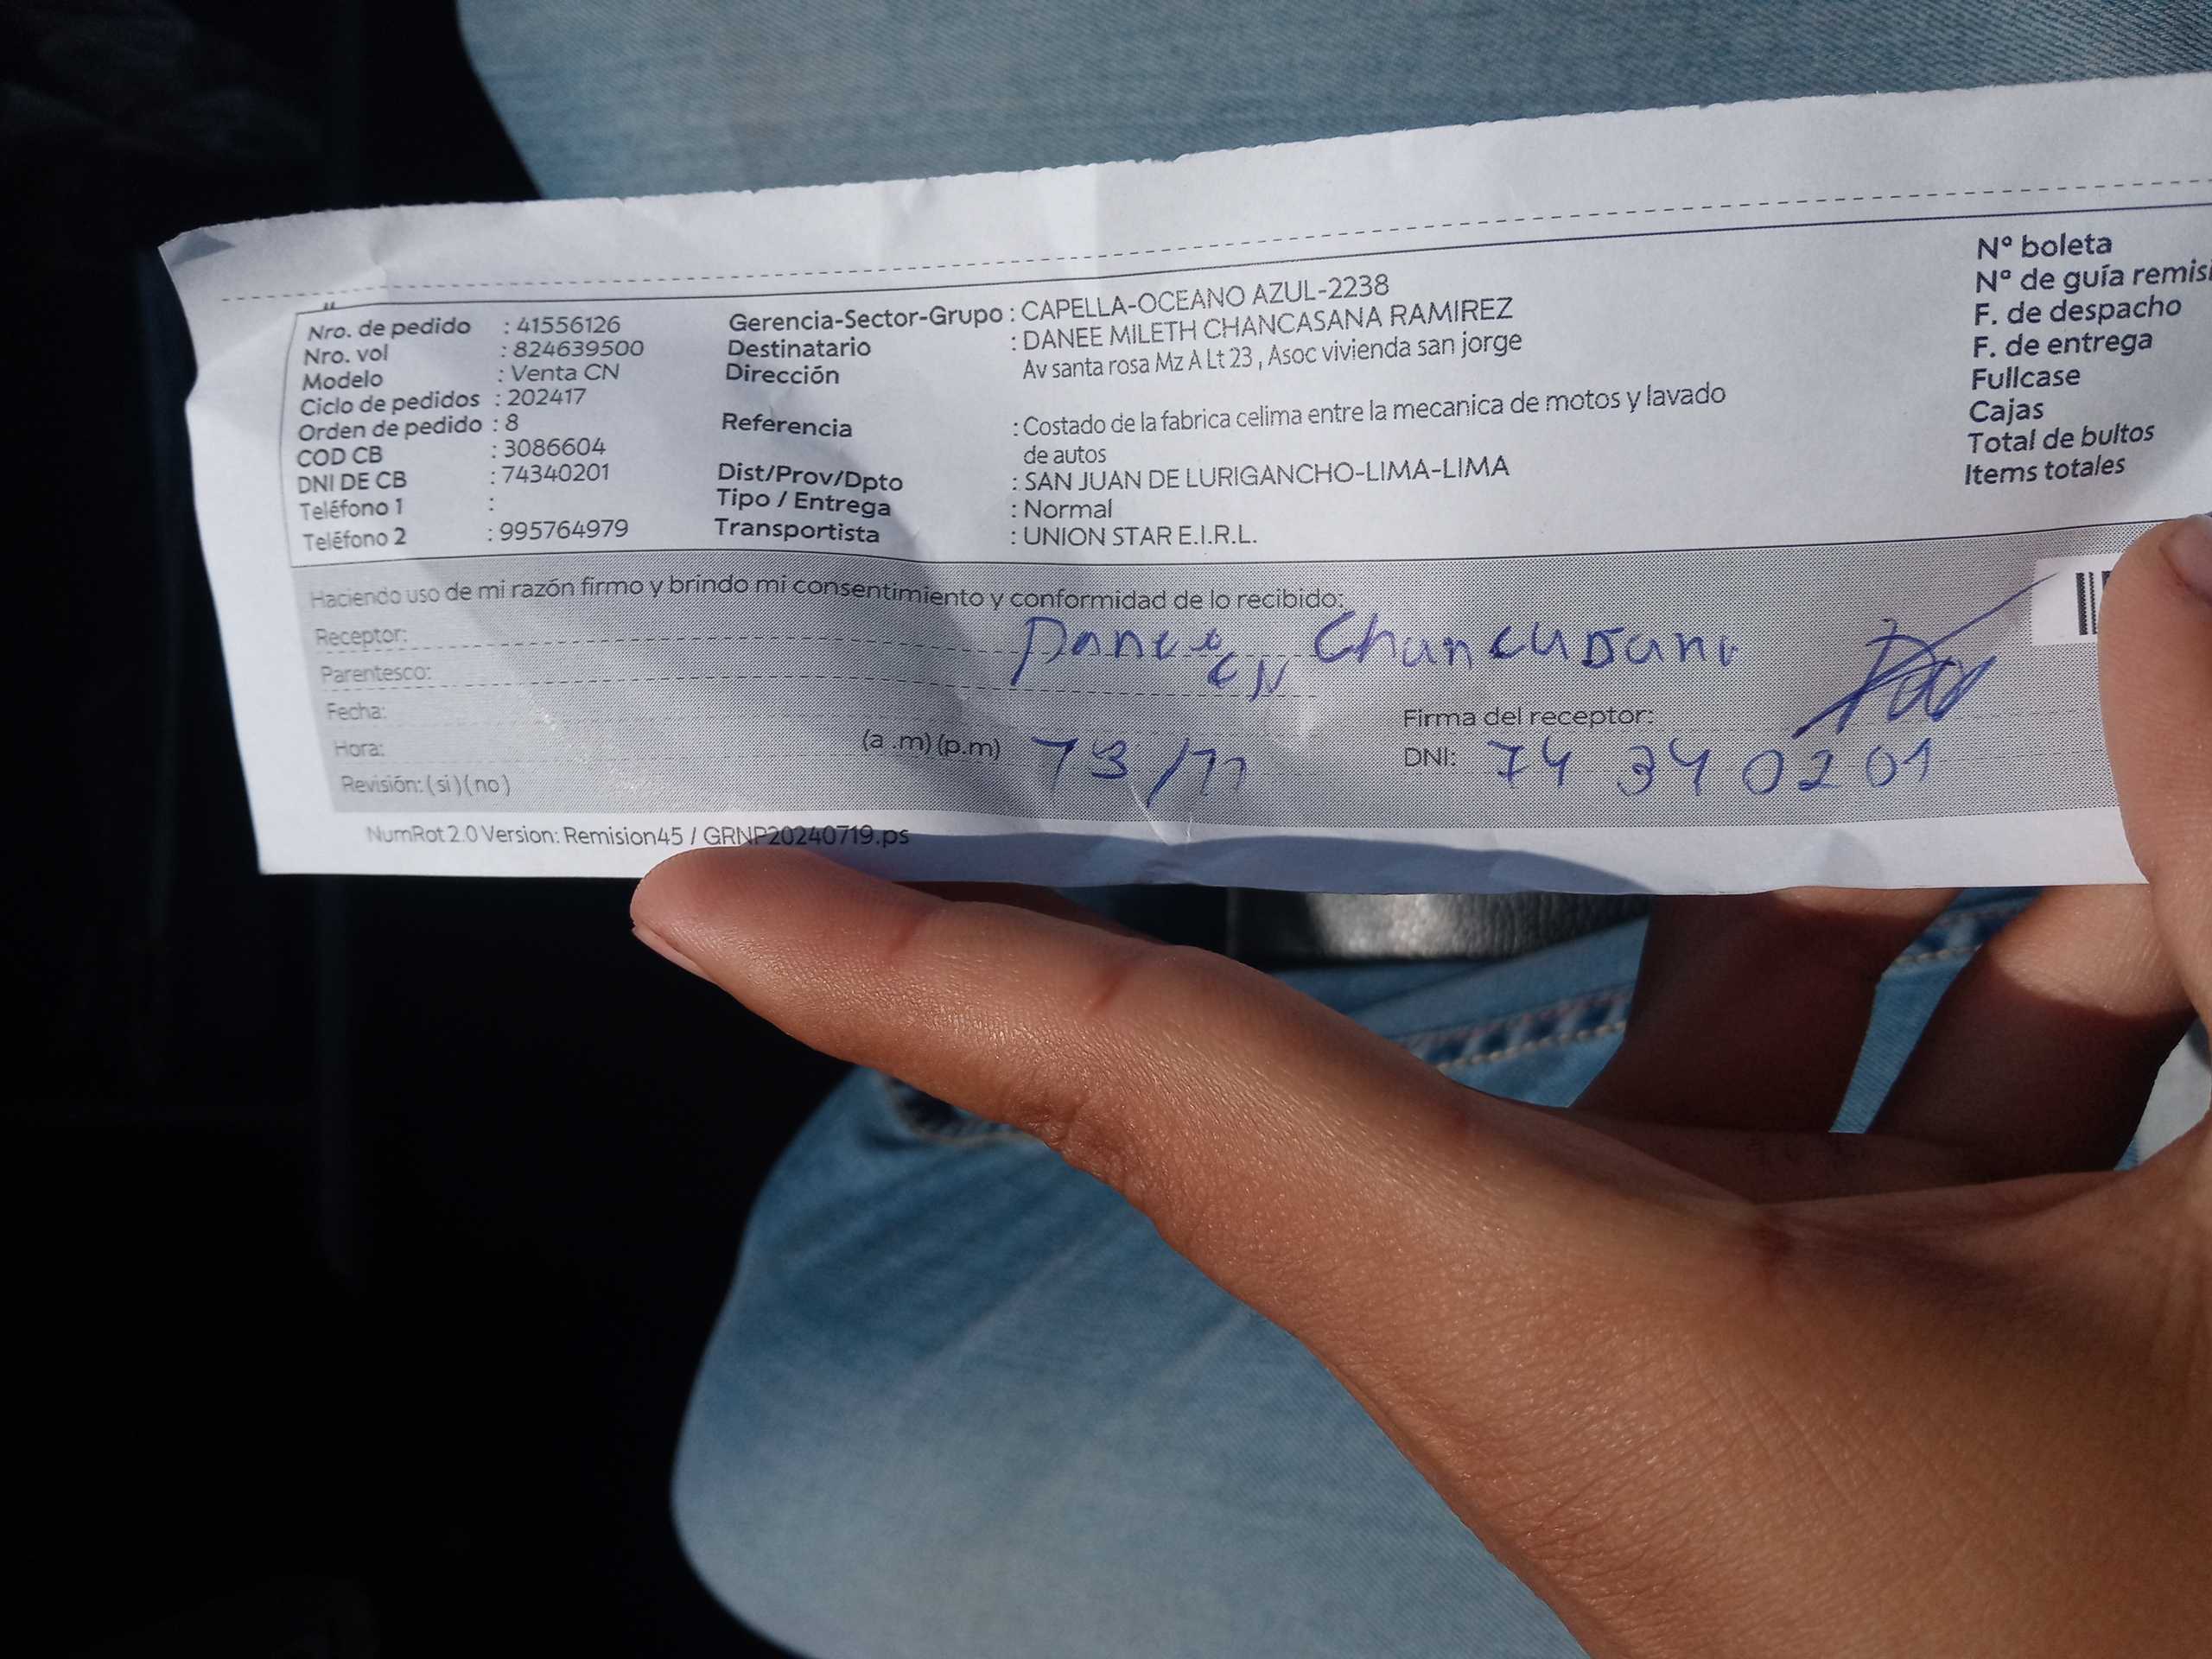 Nro. de pedido : 41556126
Nro. vol : 824639500
Modelo : Venta CN
Ciclo de pedidos : 202417
Orden de pedido : 8
COD CB : 3086604
DNI DE CB : 74340201
Teléfono 1 :
Teléfono 2 : 995764979
Gerencia-Sector-Grupo : CAPELLA-OCEANO AZUL-2238
Destinatario : DANEE MILETH CHANCASANA RAMIREZ
Dirección Av santa rosa Mz A Lt 23 , Asoc vivienda san jorge
Referencia : Costado de la fabrica celima entre la mecanica de motos y lavado
de autos
Dist/Prov/Dpto : SAN JUAN DE LURIGANCHO-LIMA-LIMA
Tipo / Entrega : Normal
Transportista : UNION STAR E.I.R.L.
Nº boleta
Nº de guía remisi
F. de despacho
F. de entrega
Fullcase
Cajas
Total de bultos
Items totales
Haciendo uso de mi razón firmo y brindo mi consentimiento y conformidad de lo recibido:
Receptor: Danee Chancasana
Parentesco: CN
Fecha:
Hora: (a .m) (p.m) 13/11
Revisión: ( si ) ( no )
Firma del receptor:
DNI: 74340201
NumRot 2.0 Version: Remision45 / GRNP20240719.ps